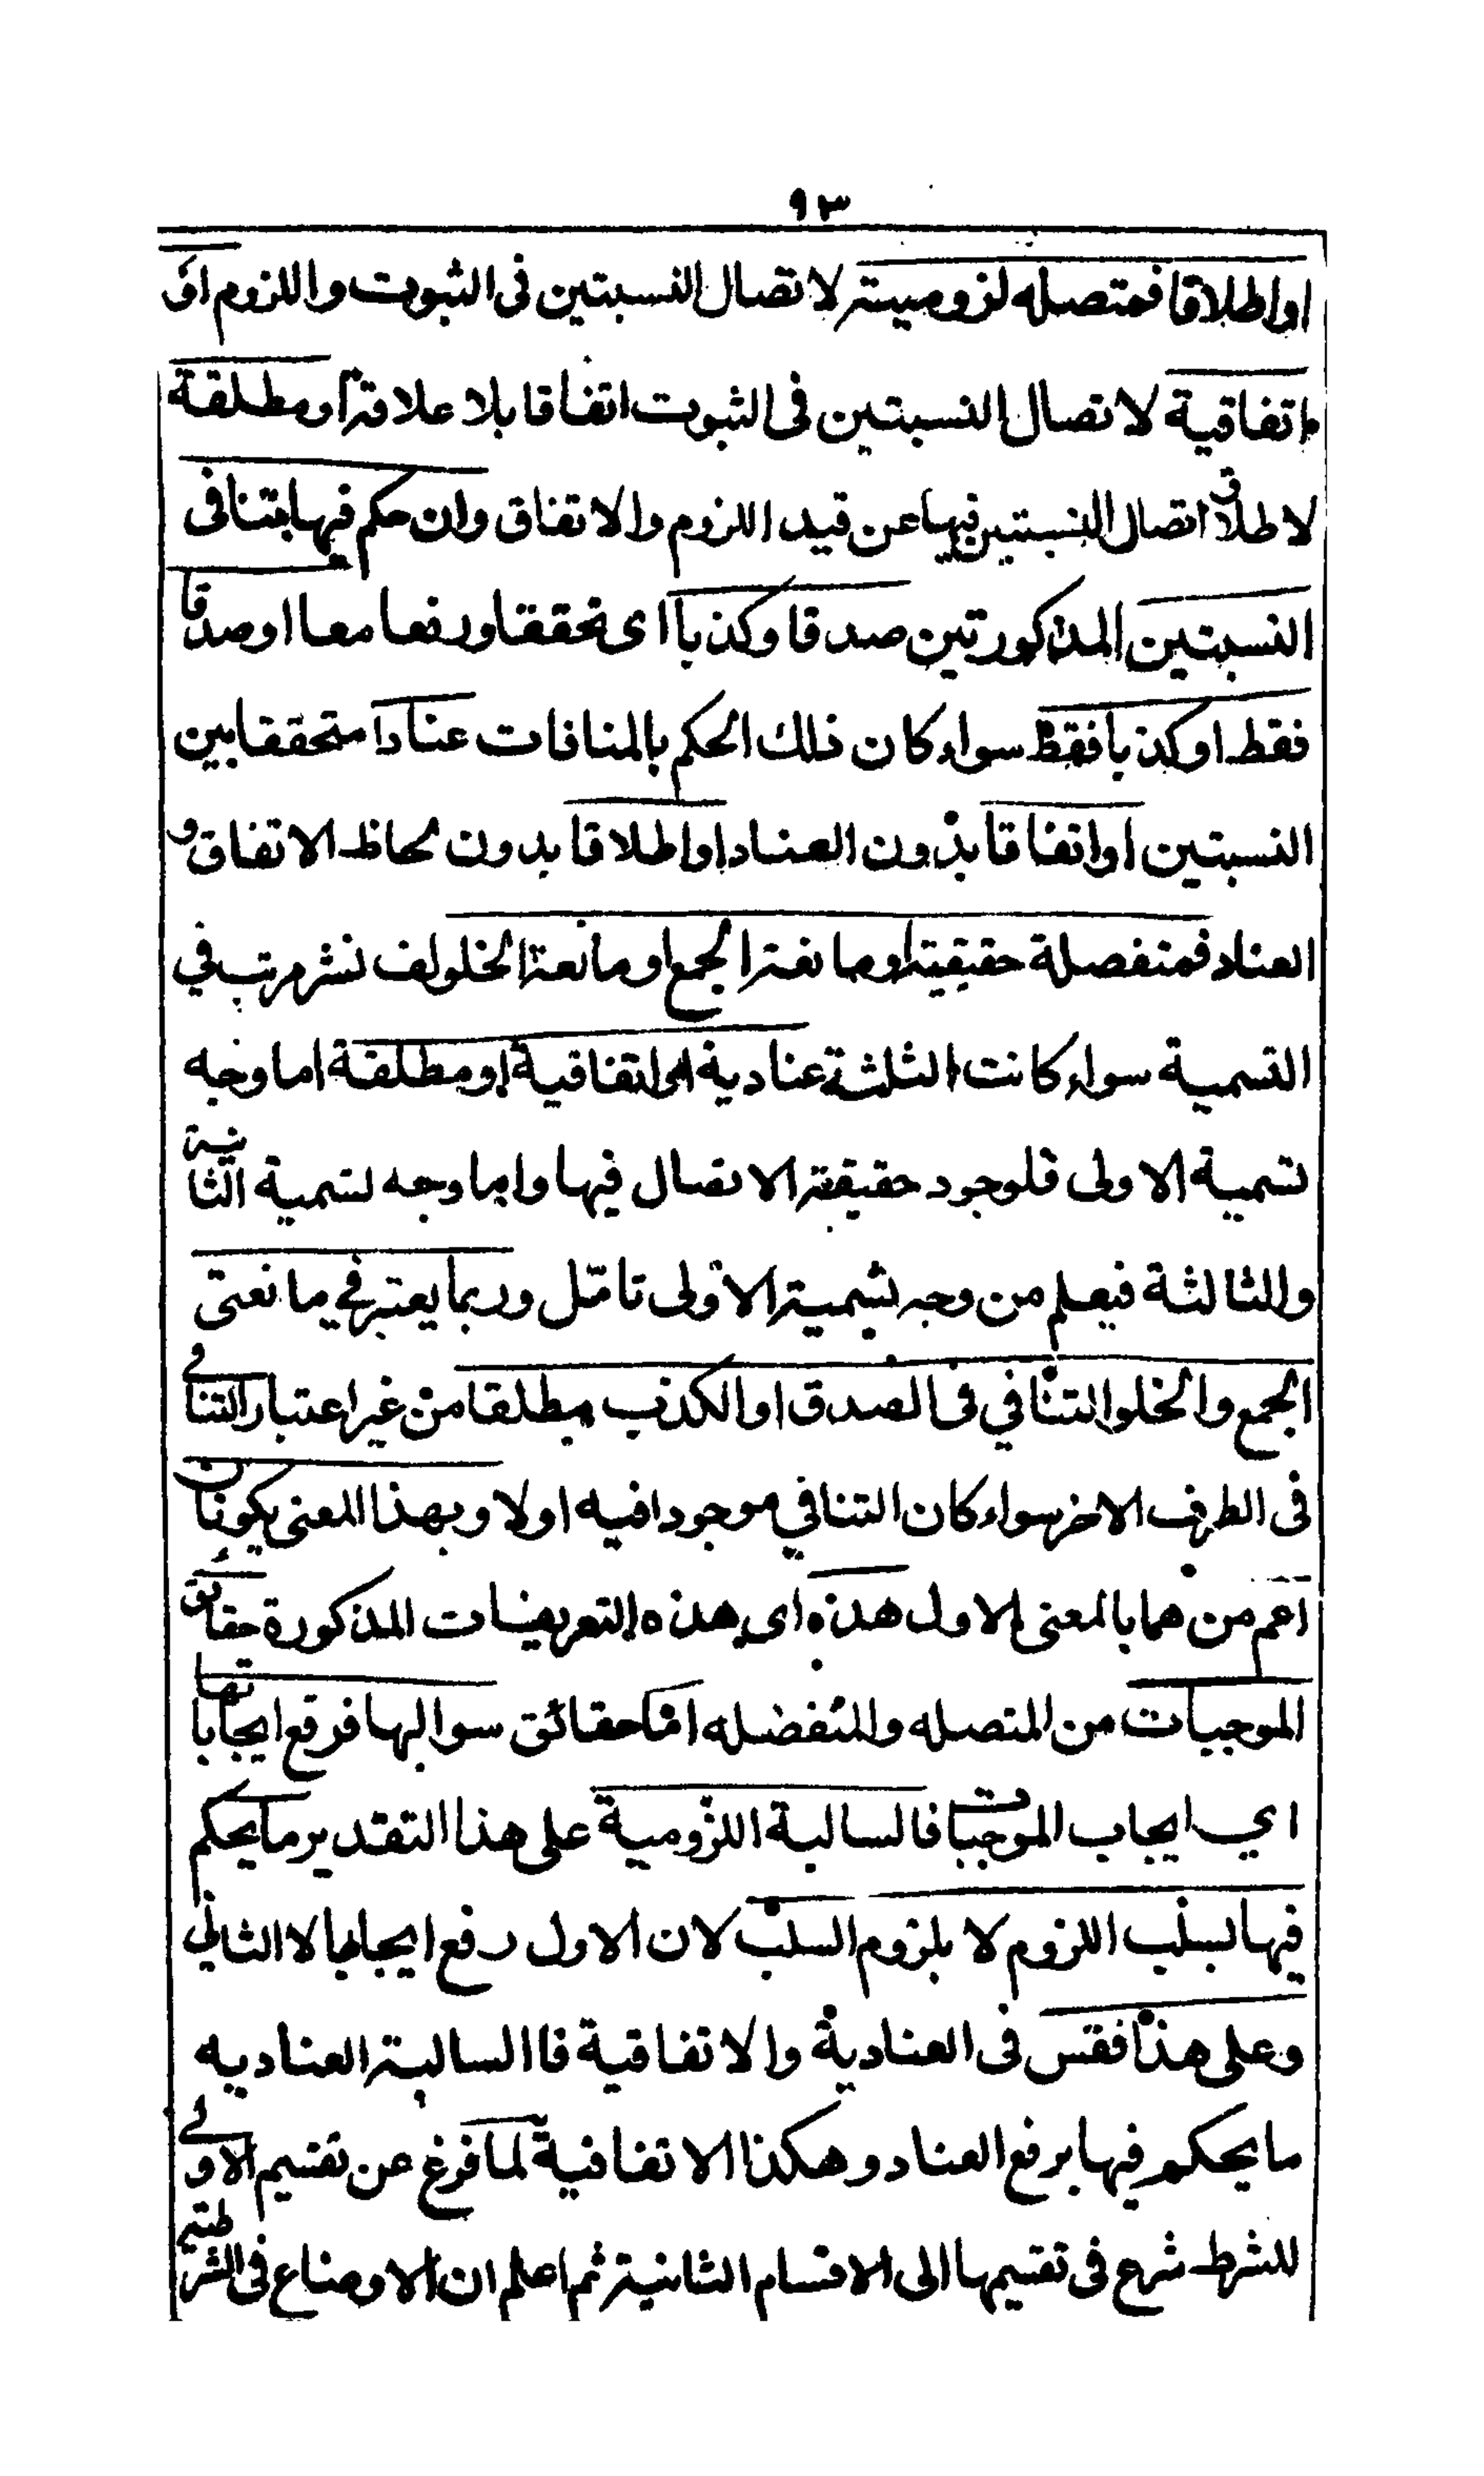 ٩٣
او اطلاقا فمتصله لزومية لاتصال النسبتين فى الثبوت واللزوم او
اتفاقية لاتصال النسبتين فى الثبوت اتفاقا بلا علاقة او مطلقة
لاطلاق اتصال النسبتين فيها عن قيد اللزوم والاتفاق وان حكم فيها بتنافى
النسبتين المذكورتين صدقا وكذبا اى تحققا ورفعا معا او صدقا
فقط او كذبا فقط سواء كان ذلك الحكم بالمنافات عنادا متحققا بين
النسبتين او اتفاقا بدون العناد او اطلاقا بدون لحاظ الاتفاق و
العناد فمنفصلة حقيقية او مانعة الجمع او مانعة الخلو لف نشر مرتب في
التسمية سواء كانت الثلثة عنادية او اتفاقية او مطلقة اما وجه
تسمية الاولى فلوجود حقيقة الاتصال فيها واما وجه تسمية الثانية
والثالثة فيعلم من وجه تسمية الاولى تامّل وربما يعتبر في مانعتى
الجمع والخلو التنافي فى الصدق او الكذب مطلقا من غير اعتبار التنافى
فى الطرف الاخر سواء كان التنافي موجودا فيه اولا وبهذا المعنى يكونان
اعم من هما بالمعنى الاول هذه اى هذه التعريفات المذكورة حقائق
الموجبات من المتصله والمنفصله امّا حقائق سوالبها فرفع ايجاباتها
اي ايجاب الموجبات فالسالبة اللزومية على هذا التقدير ما يحكم
فيها بسلب اللزوم لا بلزوم السلب لان الاول رفع ايجابها لا الثاني
وعلى هذا فقس فى العنادية والاتفاقية فاالسالبة العناديه
ما يحكم فيها برفع العناد وهكذا الاتفاقية لما فرغ عن تقسيم الاولى
للشرط شرع فى تقسيمها الى الاقسام الثانية ثم اعلم ان الاوضاع فى الشرطية